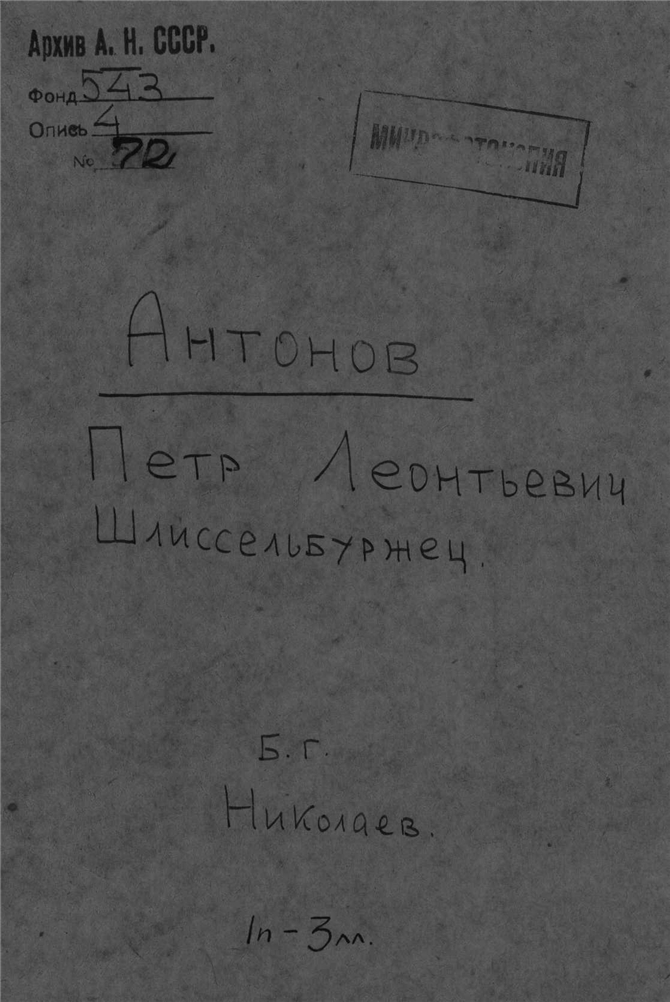 Архив А. Н. СССР.
Фонд 543
Опись 4
№ 72
Антонов
Петр Леонтьевич
Шлиссельбуржец.
Б. г.
Николаев.
1п - 3 лл.